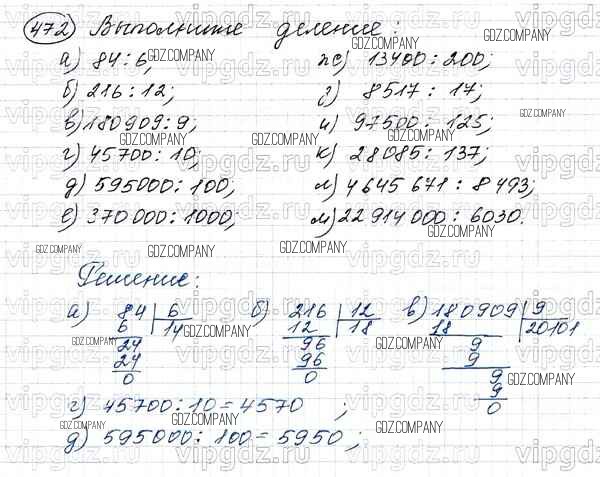 472 Выполните деление:
а) 84 : 6; ж) 13400 : 200;
б) 216 : 12; з) 8517 : 17;
в) 180909 : 9; и) 97500 : 125;
г) 45700 : 10; к) 28085 : 137;
д) 595000 : 100; л) 4645671 : 8493;
е) 370000 : 1000; м) 22914000 : 6030.
Решение:
а) 84 | 6 б) 216 | 12 в) 180909 | 9
6 | 14 12 | 18 18 | 20101
24 96 9
24 96 9
0 0 9
9
0
г) 45700 : 10 = 4570 ;
д) 595000 : 100 = 5950 ;
vipgdz.ru
GDZ.COMPANY